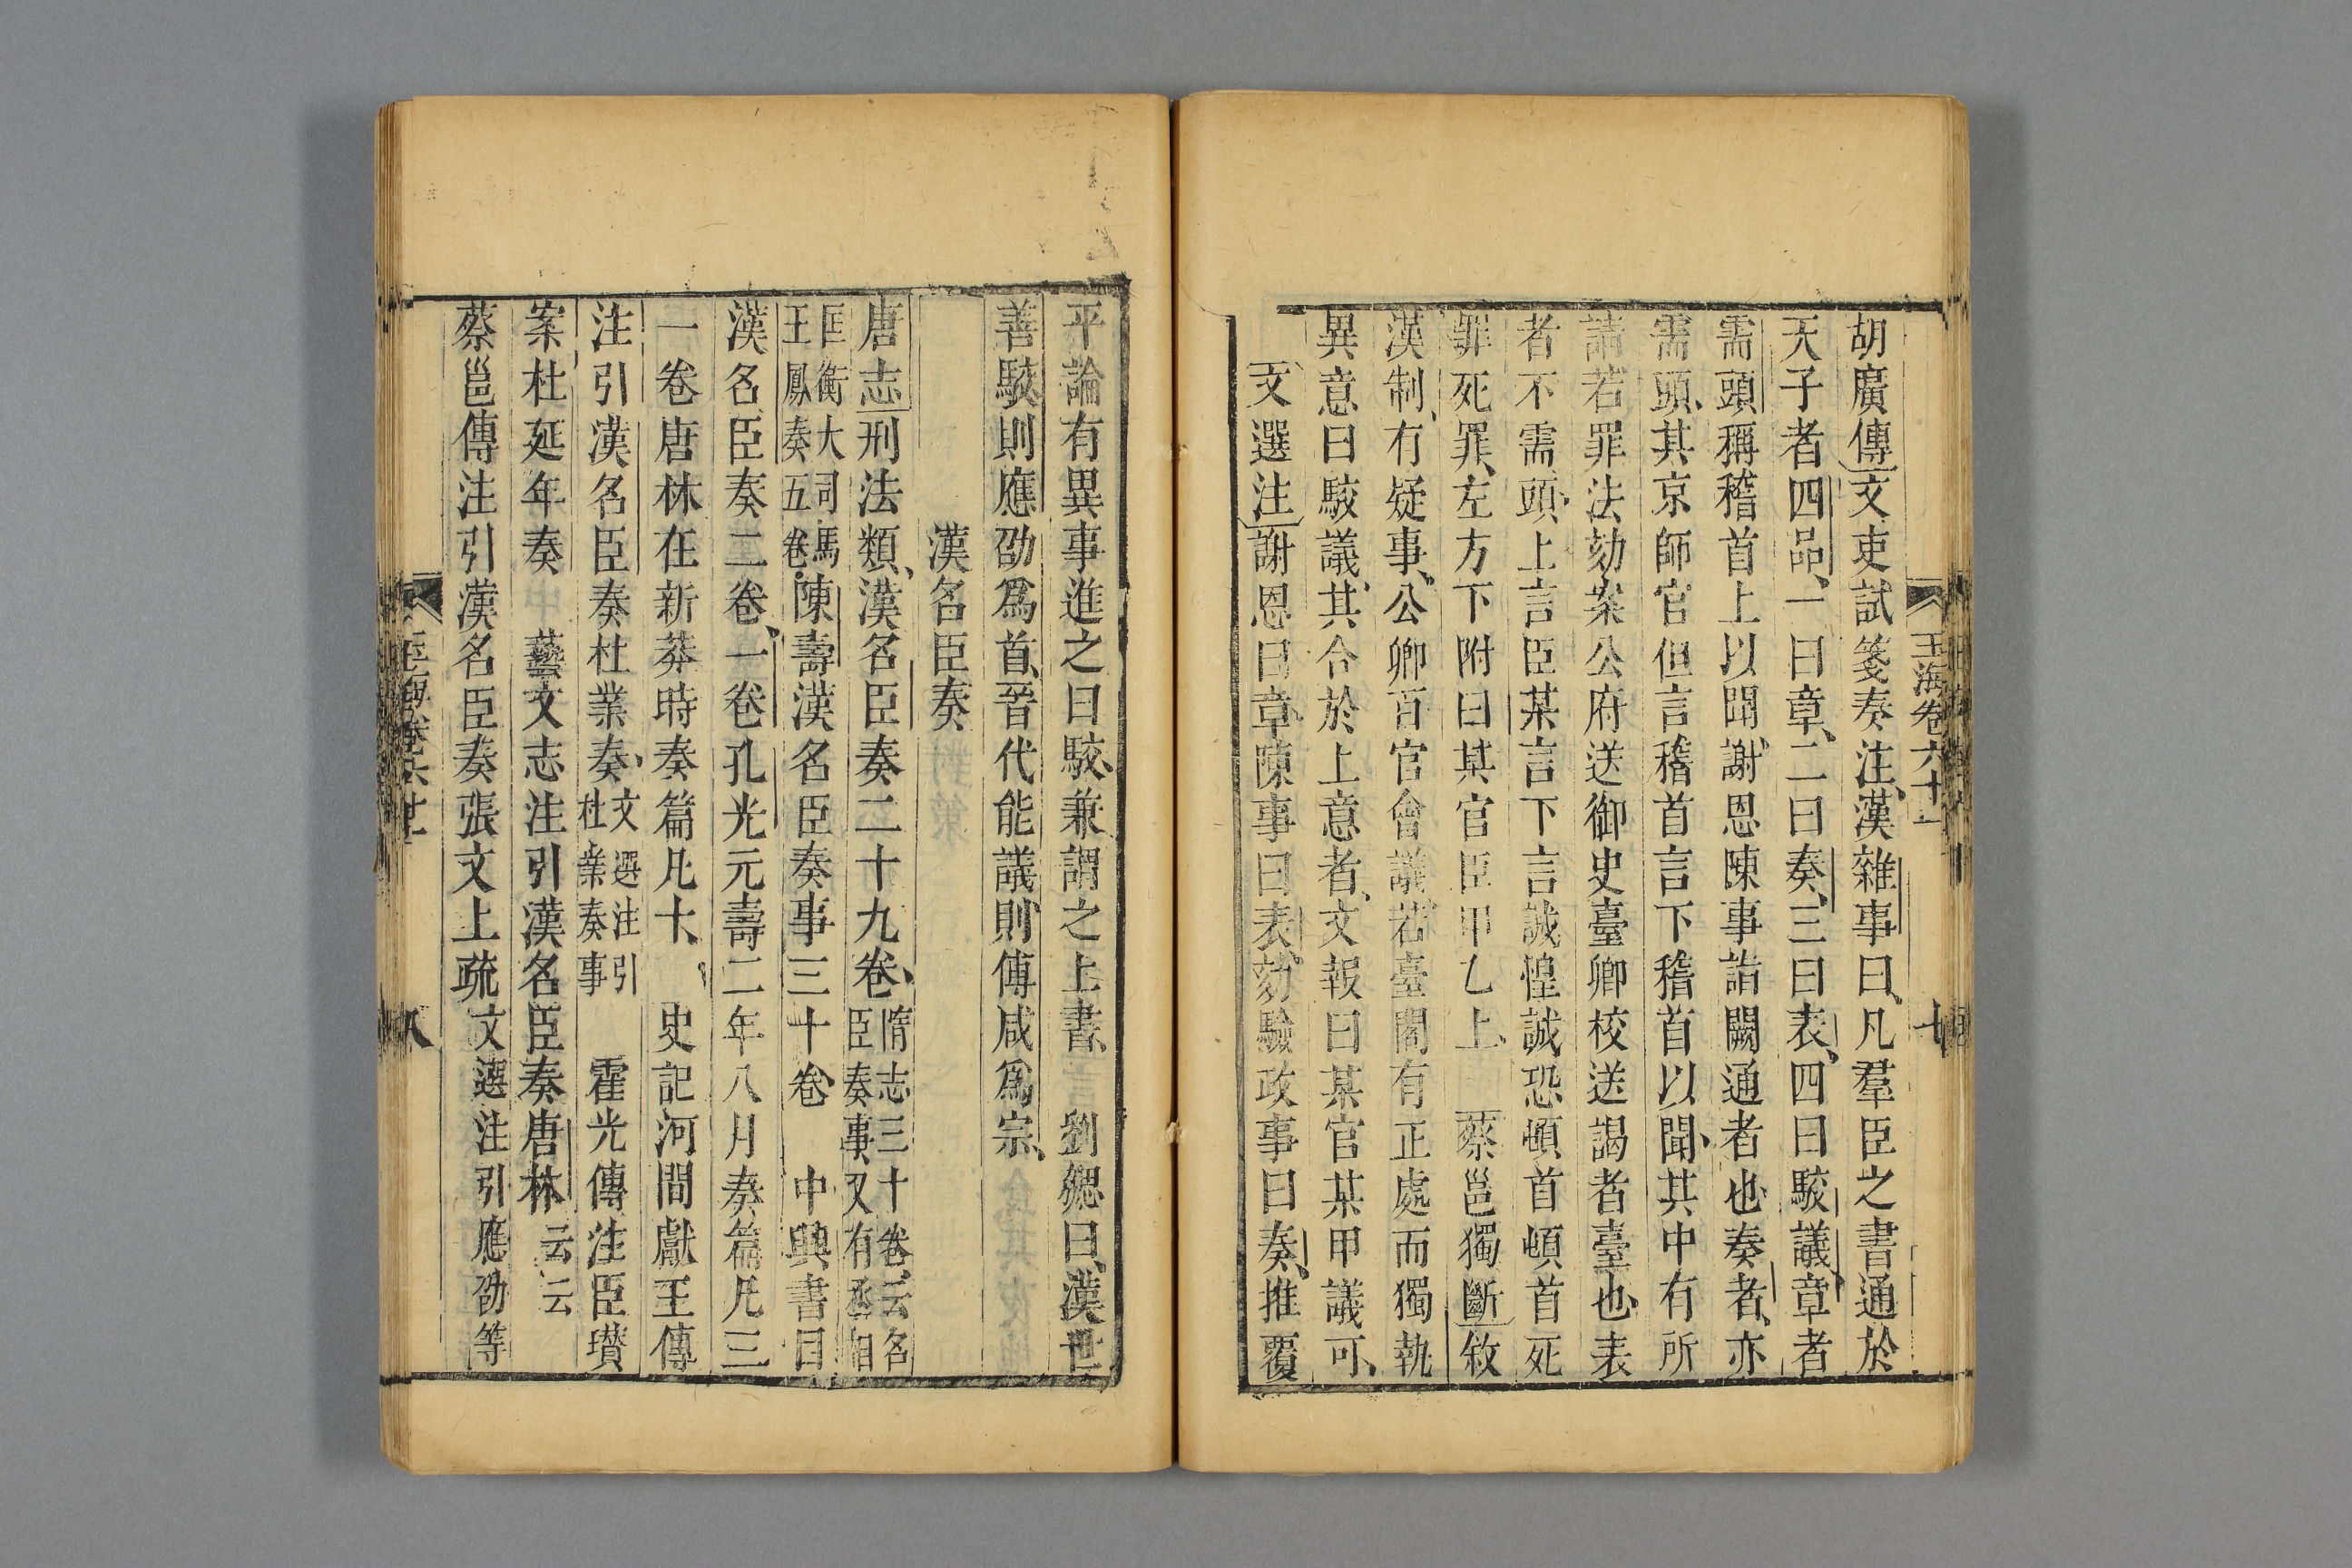 胡廣傳文吏試箋奏注漢雜事曰凡羣臣之書通於
天子者四品一曰章二曰奏三曰表四曰駮議章者
需頭稱稽首上以聞謝恩陳事詣闕通者也奏者亦
需頭其京師官但言稽首言下稽首以聞其中有所
請若罪法劾案公府送御史臺卿校送謁者臺也表
者不需頭上言臣某言下言誠惶誠恐頓首頓首死
罪死罪左方下附曰某官臣甲乙上 蔡邕獨斷敘
漢制有疑事公卿百官會議若臺閣有正處而獨執
異意曰駮議其合於上意者文報曰某官某甲議可
文選注謝恩曰章陳事曰表劾驗政事曰奏推覆
玉海卷六十一 七
平論有異事進之曰駮兼謂之上書 劉勰曰漢世
善駮則應劭爲首晉代能議則傅咸爲宗
漢名臣奏
唐志刑法類漢名臣奏二十九卷隋志三十卷云名
臣奏事又有丞相
匡衡大司馬
王鳳奏五卷陳壽漢名臣奏事三十卷 中興書目
漢名臣奏二卷一卷孔光元壽二年八月奏篇凡三
一卷唐林在新莽時奏篇凡十 史記河間獻王傳
注引漢名臣奏杜業奏文選注引
杜業奏事 霍光傳注臣瓚
案杜延年奏 藝文志注引漢名臣奏唐林云云
蔡邕傳注引漢名臣奏張文上疏文選注引應劭等
玉海卷六十一 八